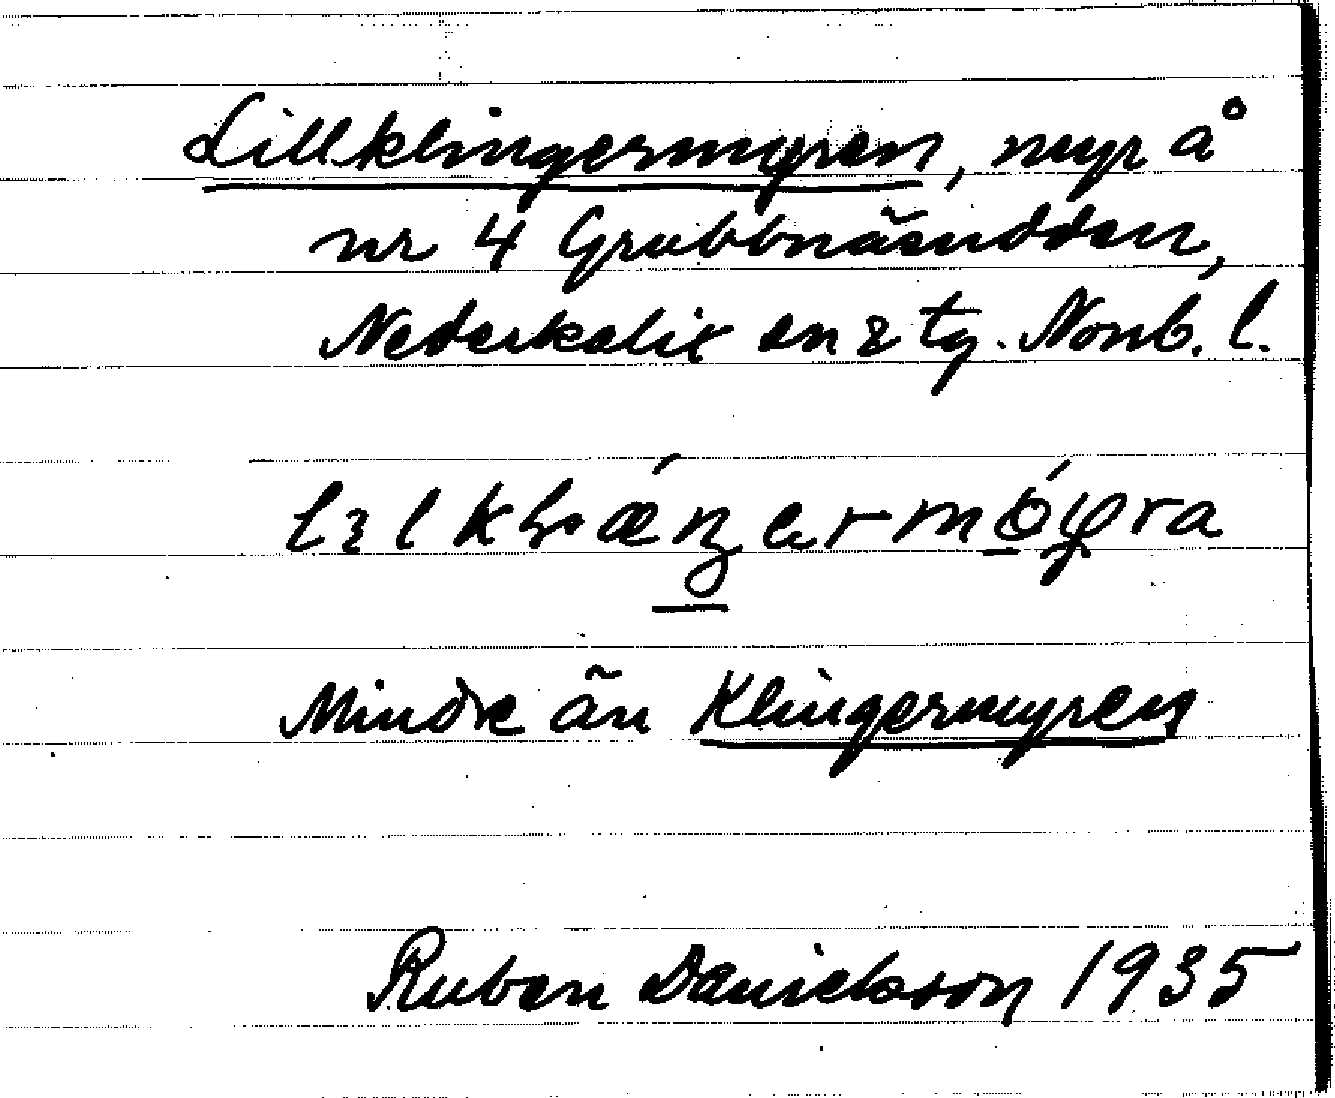 Lillklingermyren, myr å
nr 4 Grubbnäsudden,
Nederkalix sn &amp; tg. Nonb. l.
Mindre än Klingermyren
Ruben Danielsson 1935